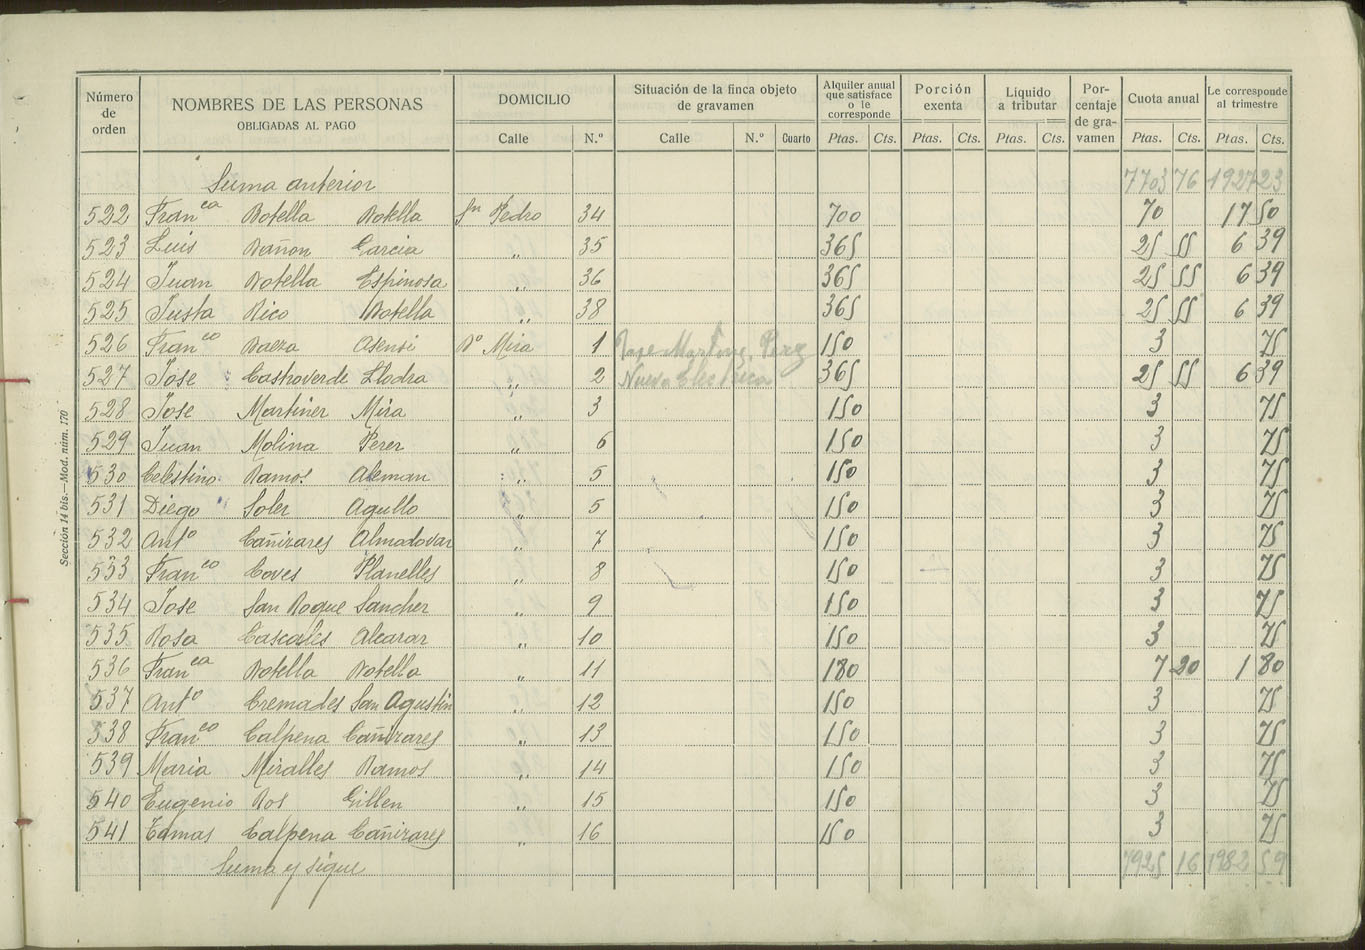 Número de orden
NOMBRES DE LAS PERSONAS OBLIGADAS AL PAGO
DOMICILIO
Calle N.º
Situación de la finca objeto de gravamen
Calle N.º Cuarto
Alquiler anual que satisface o le corresponde
Ptas. Cts.
Porción exenta
Ptas. Cts.
Líquido a tributar
Ptas. Cts.
Porcentaje de gravamen
Cuota anual
Ptas. Cts.
Le corresponde al trimestre
Ptas. Cts.
Suma anterior 7703 76 1927 23
522 Fran^ca Botella Botella Sn Pedro 34 700 70 17 50
523 Luis Bañon Garcia " 35 365 25 55 6 39
524 Juan Botella Espinosa " 36 365 25 55 6 39
525 Justa Rico Botella " 38 365 25 55 6 39
526 Fran^co Baeza Asensi Bº Mira 1 150 3 75
527 Jose Castroverde Llodra " 2 Nueva Electrica 365 25 55 6 39
528 Jose Martinez Mira " 3 150 3 75
529 Juan Molina Perez " 6 150 3 75
530 Celestino Ramos Aleman " 5 150 3 75
531 Diego Soler Agullo " 5 150 3 75
532 Antº Cañizares Almodovar " 7 150 3 75
533 Fran^co Coves Planelles " 8 150 3 75
534 Jose San Roque Sanchez " 9 150 3 75
535 Rosa Cascales Alcaraz " 10 150 3 75
536 Fran^ca Botella Botella " 11 180 7 20 1 80
537 Antº Cremades San Agustin " 12 150 3 75
538 Fran^co Calpena Cañizares " 13 150 3 75
539 Maria Miralles Ramos " 14 150 3 75
540 Eugenio Ros Gillen " 15 150 3 75
541 Tomas Calpena Cañizares " 16 150 3 75
Suma y sigue 7925 16 1982 59
Sección 14 bis.—Mod. núm. 170